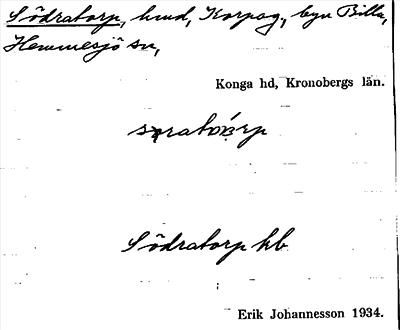 Södratorp, hmd, Korpog, byn Billa,
Hemmesjö sn,
Konga hd, Kronobergs län.
Södratorp kb
Erik Johannesson 1934.